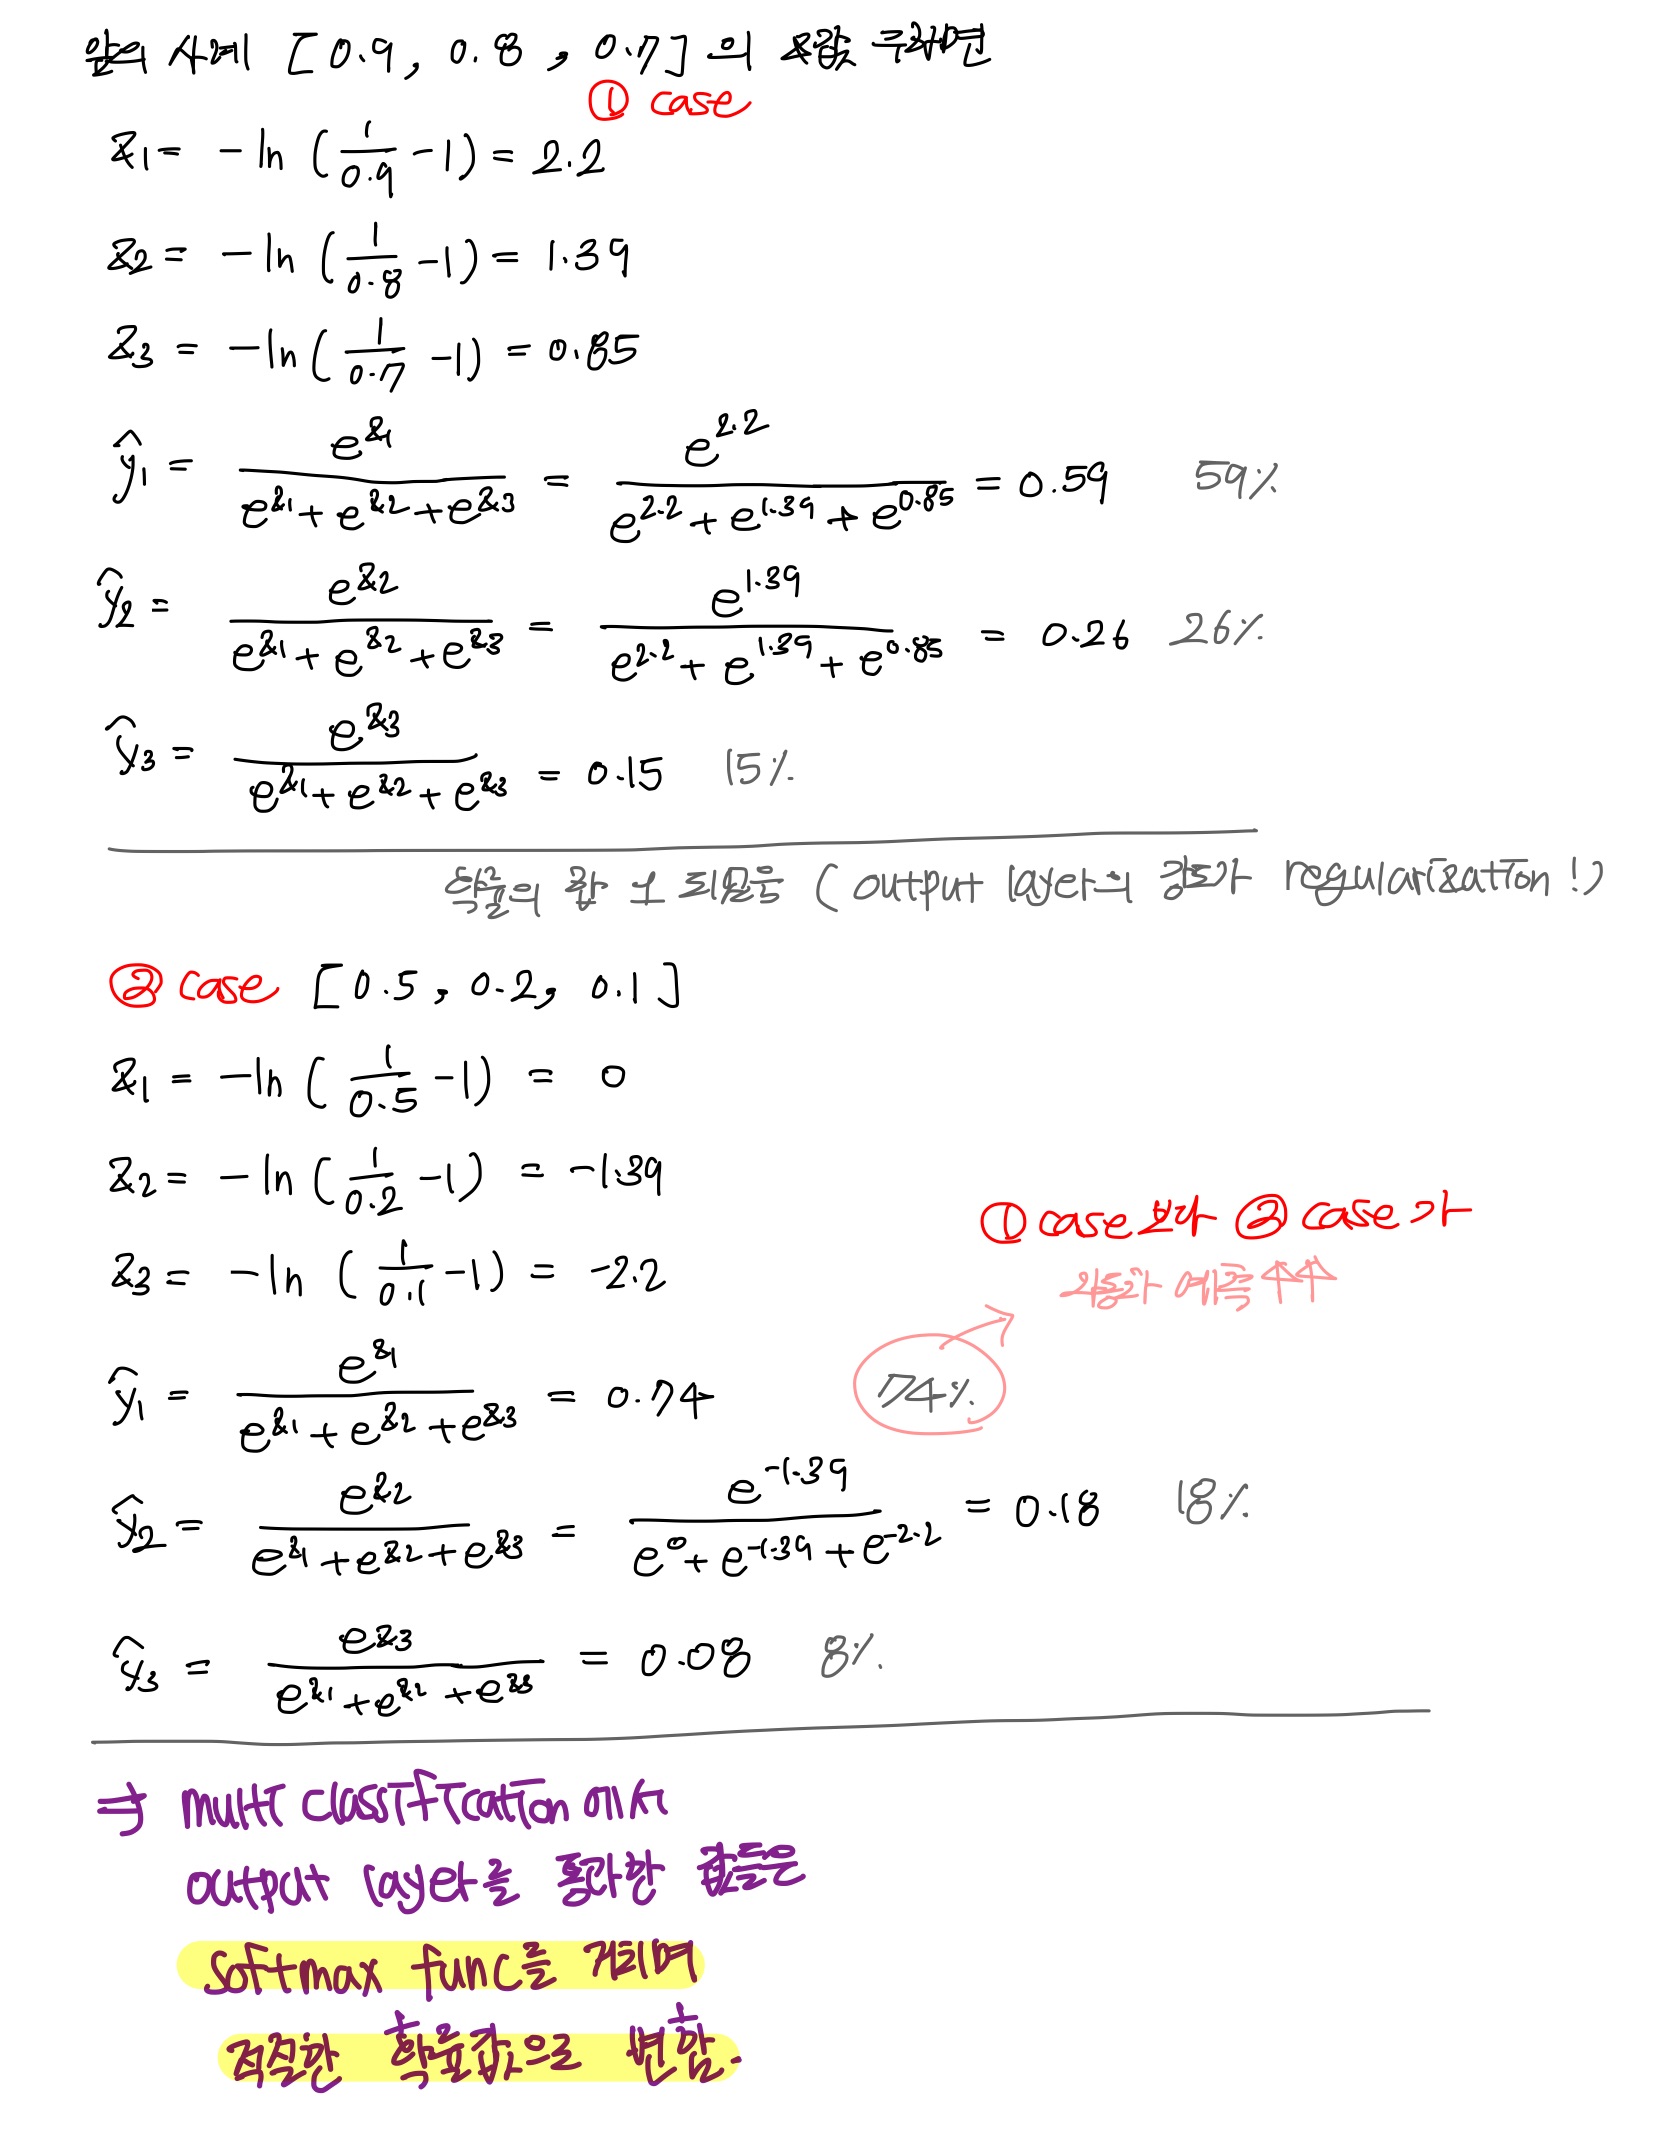 앞의 사례 [0.9, 0.8, 0.7]의 z값 구하면
① case
z1 = -ln (1/0.9 -1) = 2.2
z2 = -ln (1/0.8 -1) = 1.39
z3 = -ln (1/0.7 -1) = 0.85
ŷ1 = e^z1 / (e^z1 + e^z2 + e^z3) = e^2.2 / (e^2.2 + e^1.39 + e^0.85) = 0.59 59%
ŷ2 = e^z2 / (e^z1 + e^z2 + e^z3) = e^1.39 / (e^2.2 + e^1.39 + e^0.85) = 0.26 26%
ŷ3 = e^z3 / (e^z1 + e^z2 + e^z3) = 0.15 15%
확률의 합 1 (output layer의 강도가 regularization!)
② case [0.5, 0.2, 0.1]
z1 = -ln (1/0.5 -1) = 0
z2 = -ln (1/0.2 -1) = -1.39
z3 = -ln (1/0.1 -1) = -2.2
① case보다 ② case가
예측 ↑↑
ŷ1 = e^z1 / (e^z1 + e^z2 + e^z3) = 0.74 74%
ŷ2 = e^z2 / (e^z1 + e^z2 + e^z3) = e^-1.39 / (e^0 + e^-1.39 + e^-2.2) = 0.18 18%
ŷ3 = e^z3 / (e^z1 + e^z2 + e^z3) = 0.08 8%
⇒ multi classification에서
output layer를 통과한 값들은
softmax func를 거치며
적절한 확률값으로 변함.